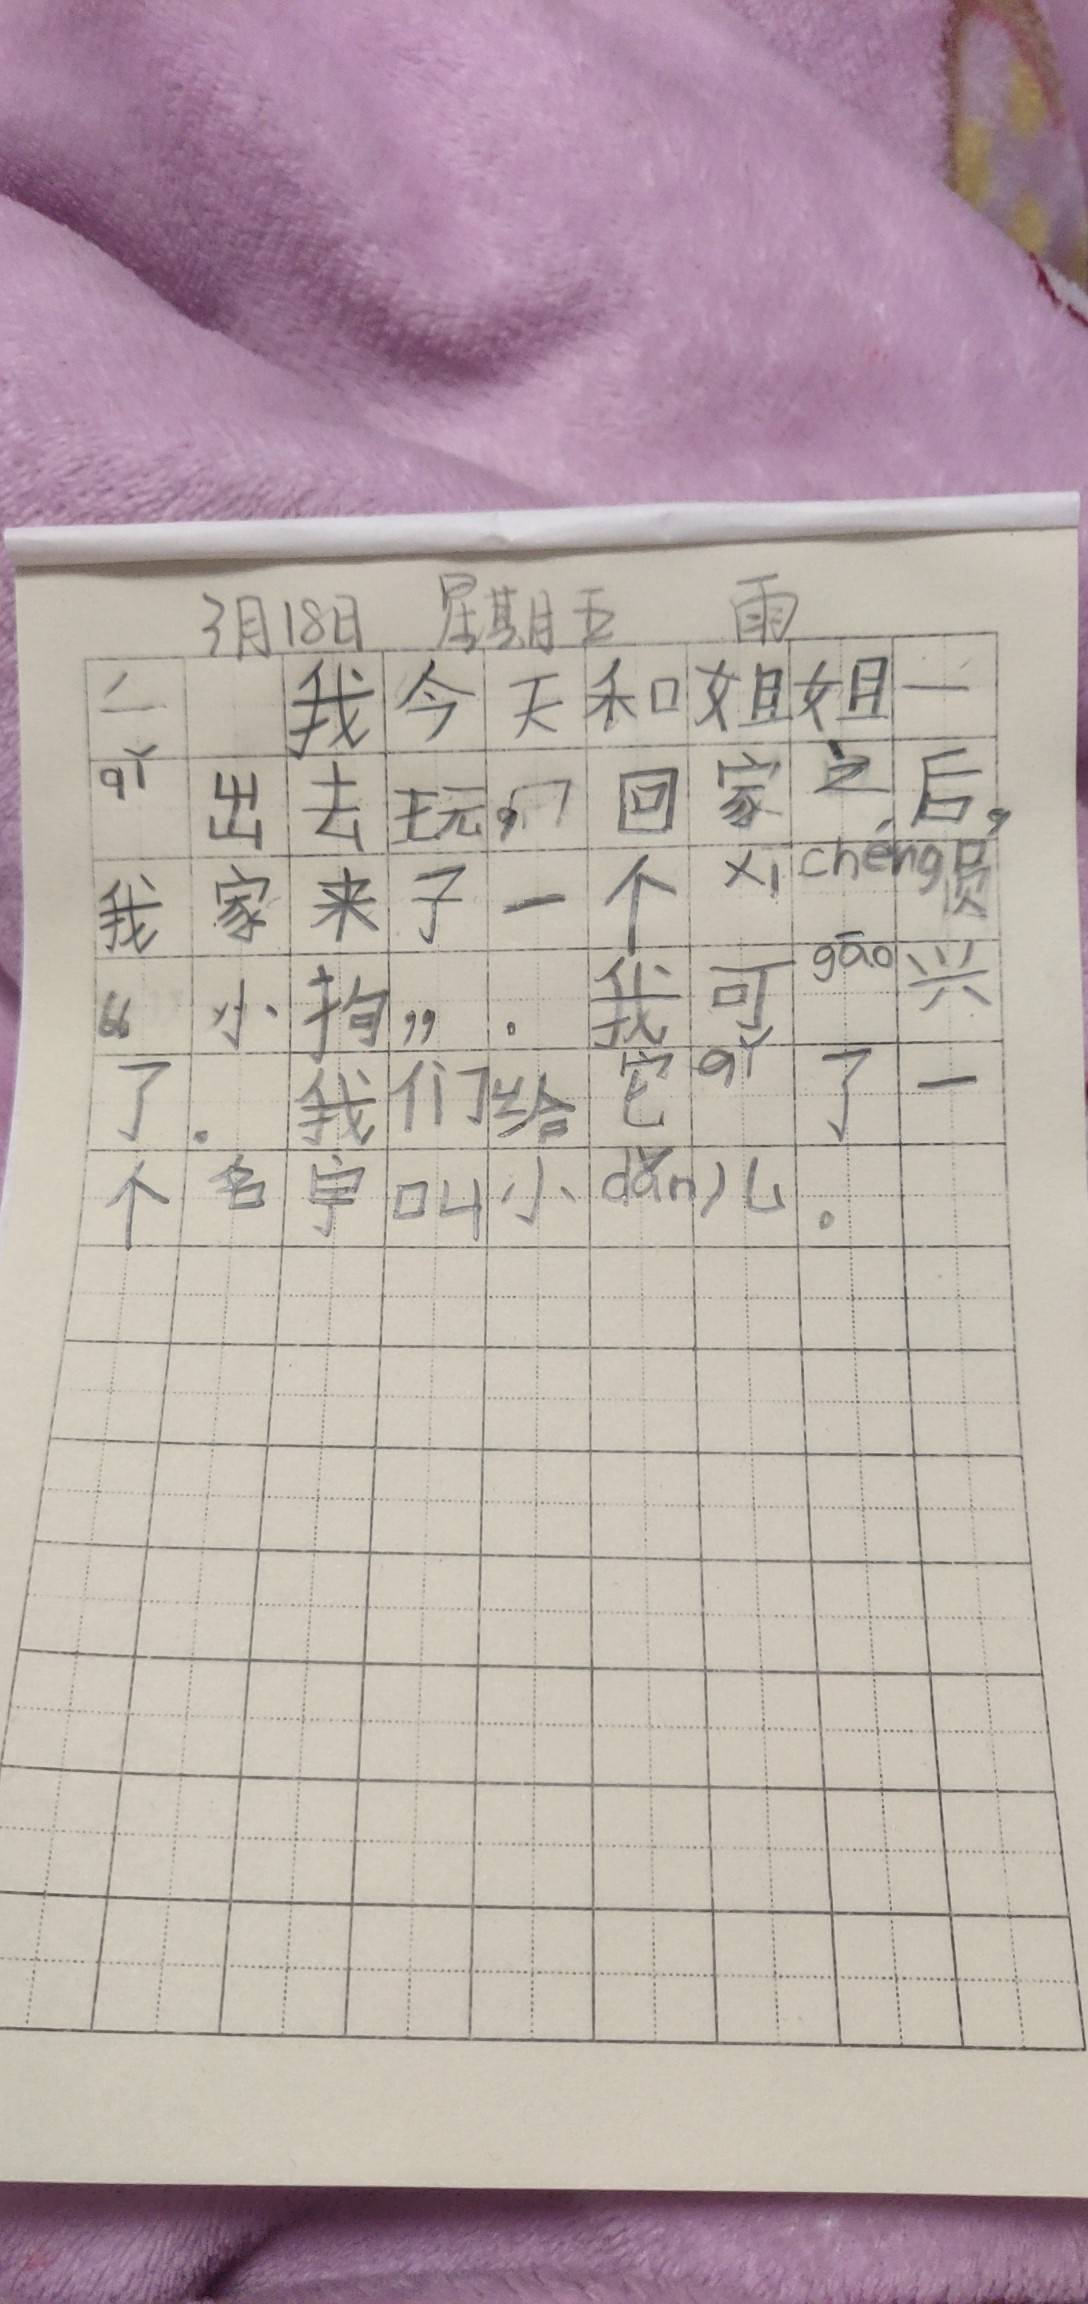 3月18日 星期五 雨
我今天和姐姐一
qǐ出去玩,回家之后,
我家来了一个xī chéng员
“小狗”.我可gāo兴
了.我们给它qǐ了一
个名字叫小dǎn儿。